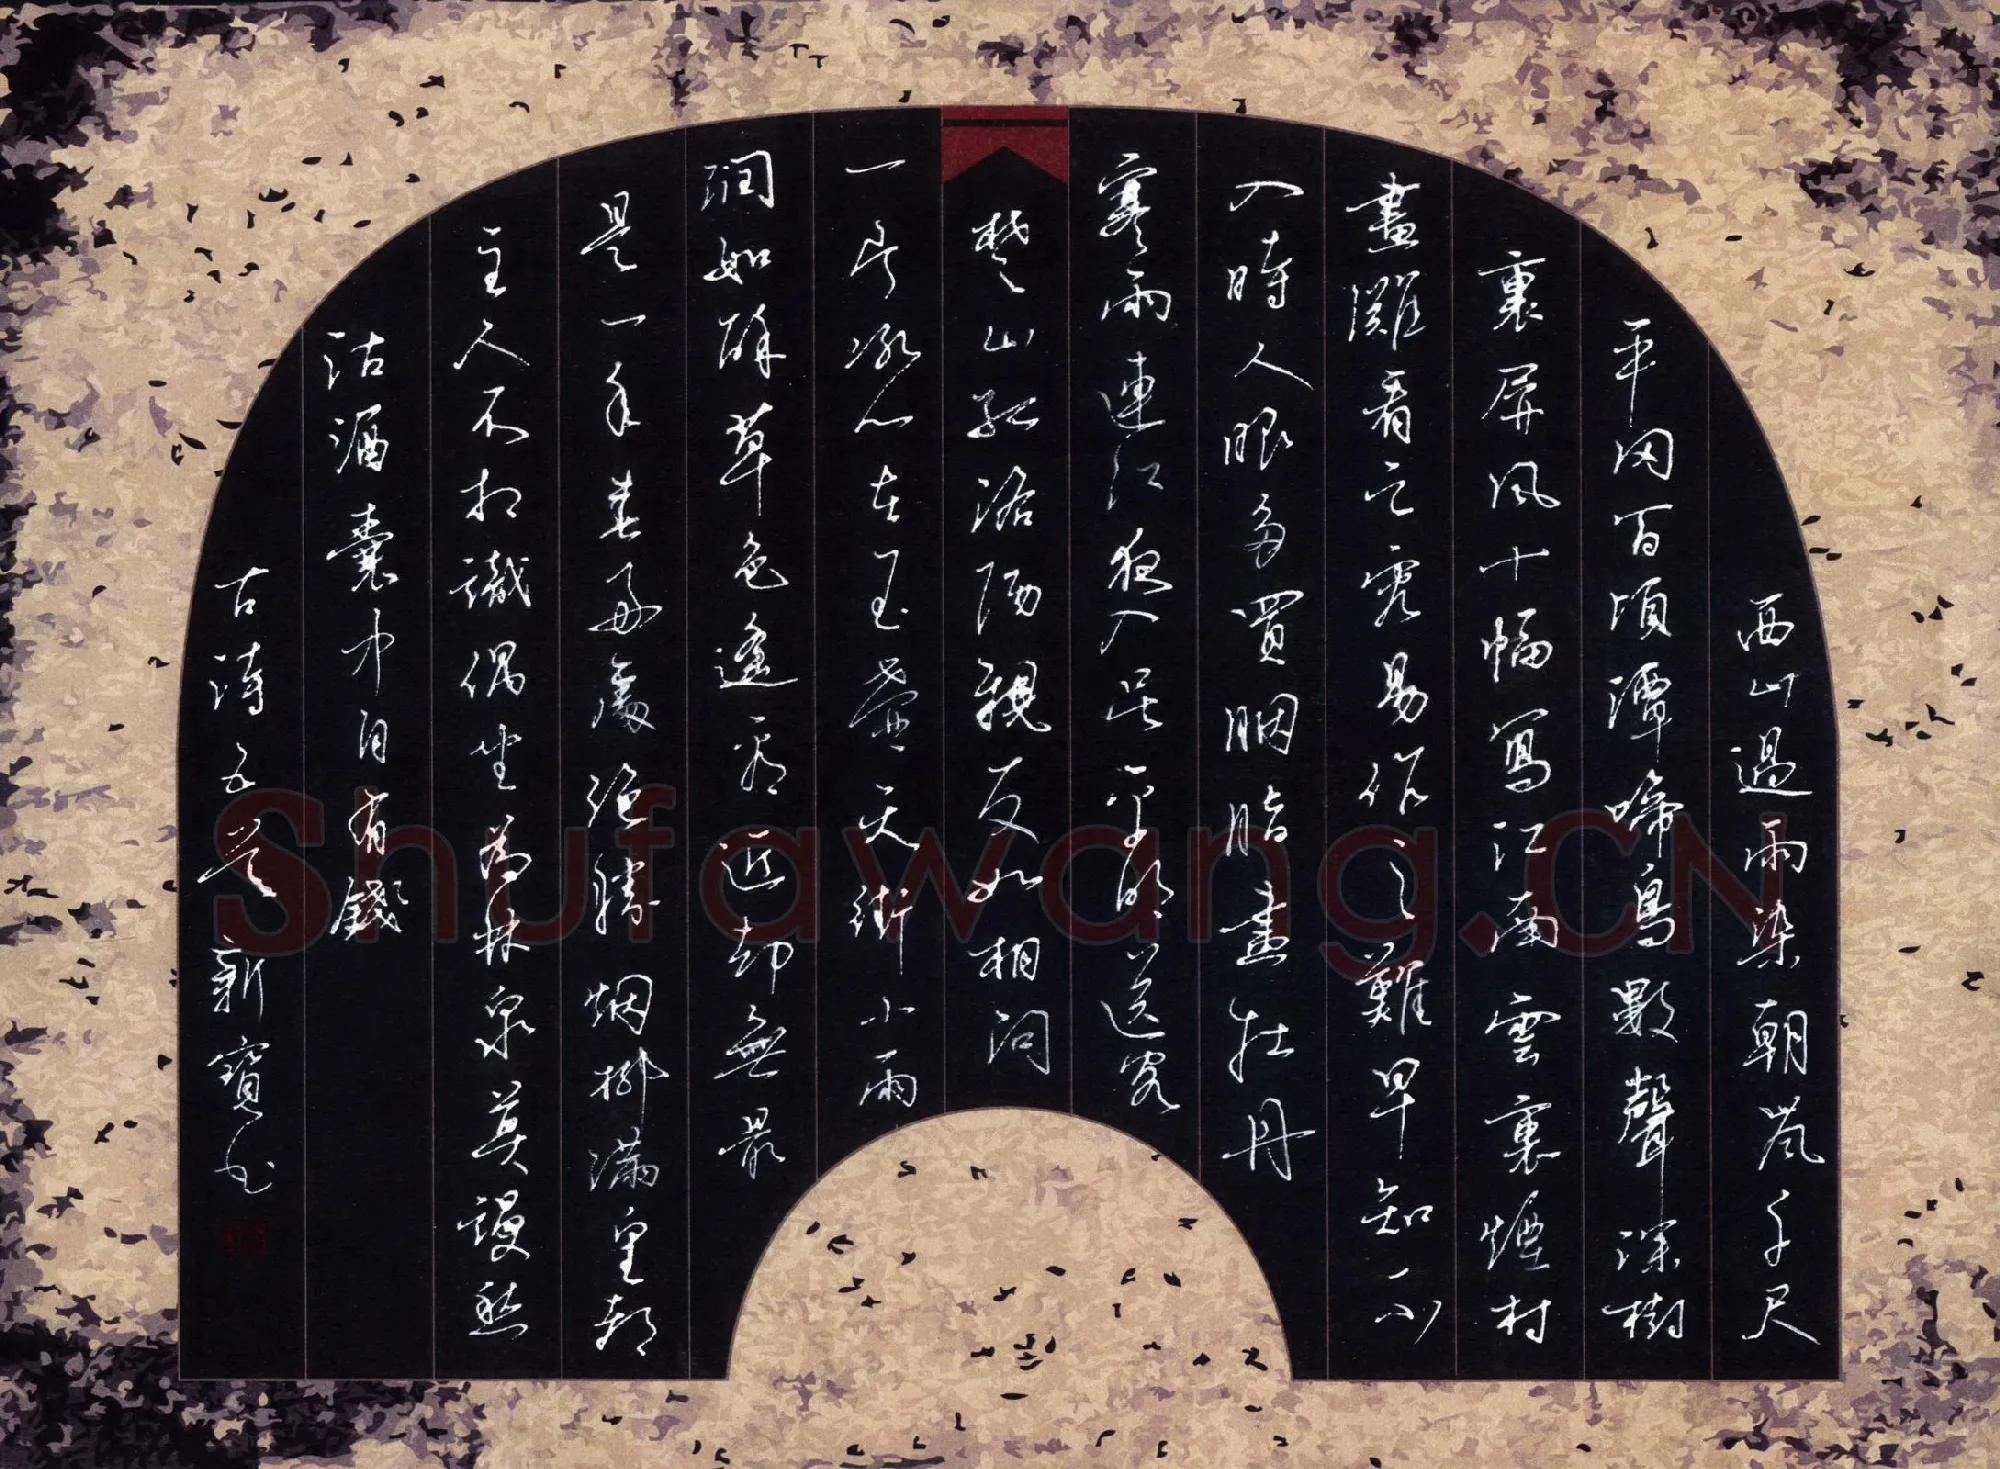 西山過雨染朝嵐千尺
平冈百頃潭啼鳥數聲深樹
裏屏風十幅寫江南雲裏煙村
畫灘看之容易作之難早知不
入時人眼多買胭脂畫牡丹
寒雨連江夜入吳平明送客
楚山孤洛陽親友如相問
一片冰心在玉壺天街小雨
潤如酥草色遙看近却無最
是一年春好處絕勝烟柳滿皇都
主人不相識偶坐為林泉莫謾愁
沽酒囊中自有錢
古詩五首 新寶書
Shufawang.CN